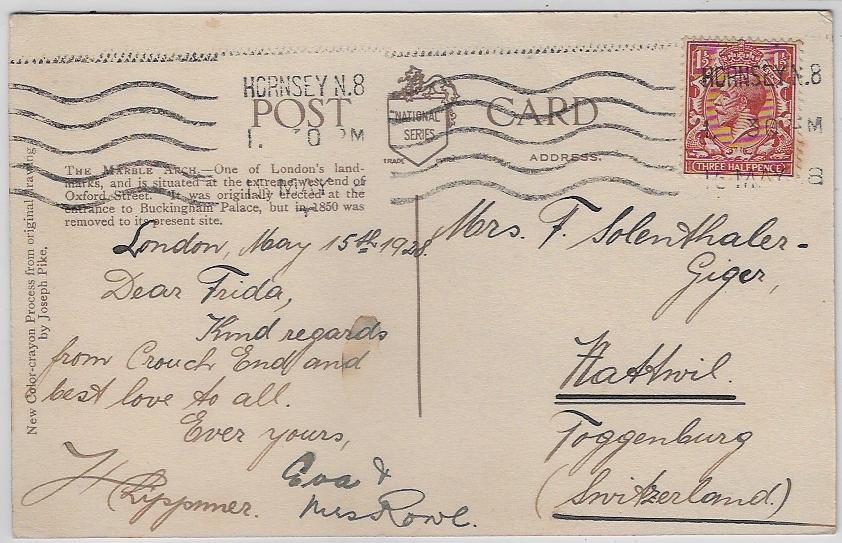 HORNSEY N.8
POST CARD
"NATIONAL"
SERIES
TRADE
ADDRESS.
1. 30 PM
MAY
1½ 1½
HORNSEY N.8
THREE HALFPENCE
THE MARBLE ARCH.—One of London's land-
marks, and is situated at the extreme west end of
Oxford Street. It was originally erected at the
entrance to Buckingham Palace, but in 1850 was
removed to its present site.
New Color-crayon Process from original drawing
by Joseph Pike.
London, May 15th 1928.
Dear Frida,
Kind regards
from Crouch End and
best love to all.
Ever yours,
Eva &
Mrs Rowe.
Mrs. F. Solenthaler-
Giger,
Nattwil.
Toggenburg
(Switzerland.)